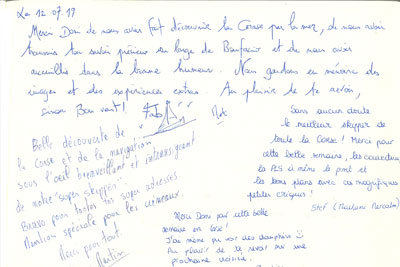 Le 12.07.17
Merci Dom de nous avoir fait découvrir la Corse par la mer, de nous avoir
transmis ton savoir précieux au large de Bonifacio et de nous avoir
accueillis dans la bonne humeur. Nous gardons en mémoire des
images et des expériences extras. Au plaisir de te revoir,
sinon Bon vent !
Belle découverte de
la Corse et de la navigation
sous l'oeil bienveillant et
de notre "super skipper".
Bravo pour toutes tes super adresses
Mention spéciale pour les
Merci pour tout
Sans aucun doute
le meilleur skipper de
toute la Corse ! Merci pour
cette belle semaine, les
la à même le pont et
les bons plans avec ces magnifiques
petites criques !
Stef
Merci Dom pour cette belle
semaine en Corse !
J'ai même pu voir des dauphins
Au plaisir de te revoir sur une
prochaine